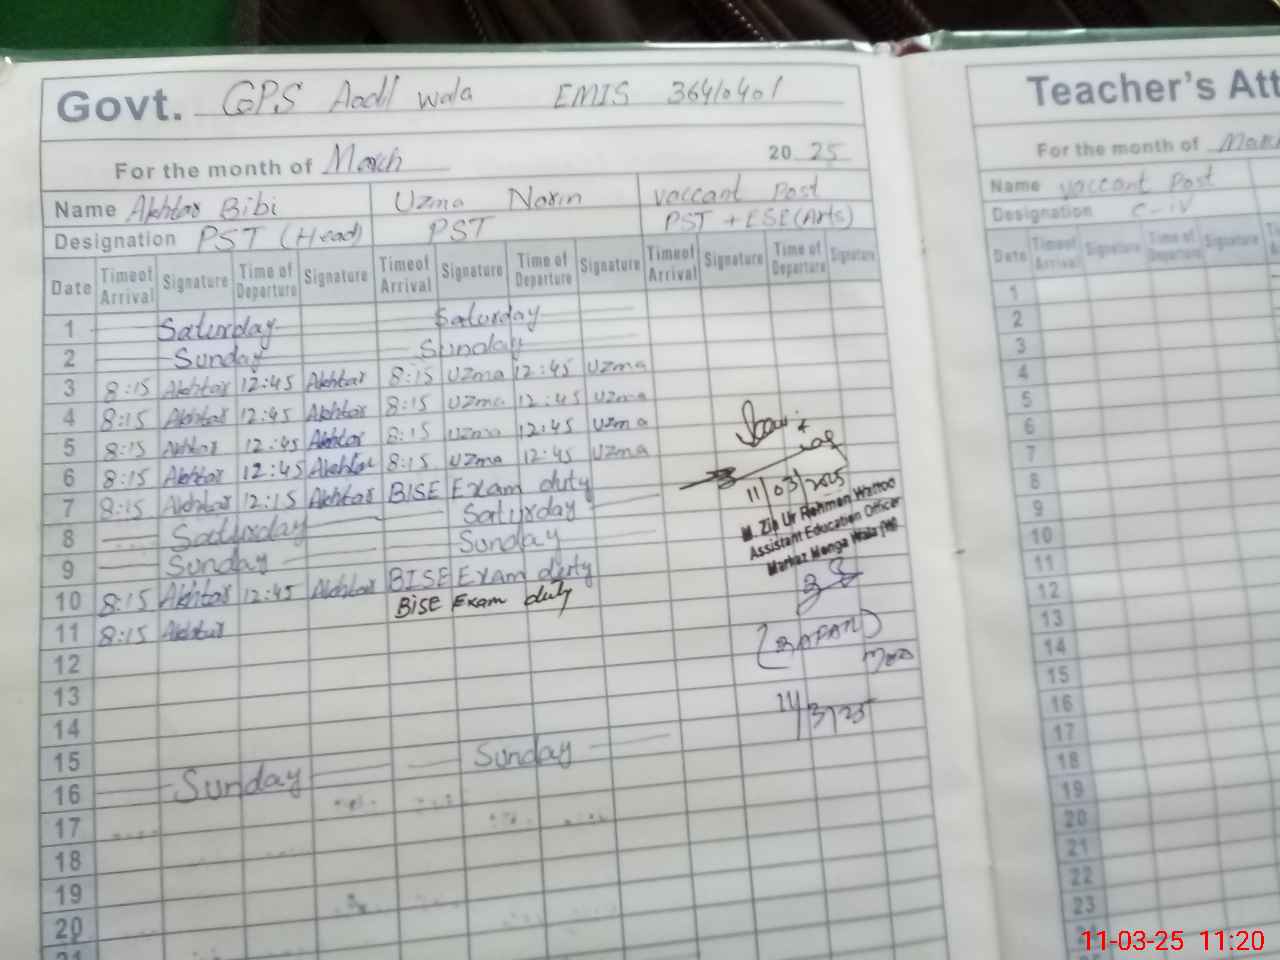 Govt. GPS Aadll wala EMIS 36410401
For the month of March 2025
Name Akhtar Bibi Uzma Norin vaccant Post
Designation PST (Head) PST PST + ESE(Arts)
Date Timeof Arrival Signature Time of Departure Signature Timeof Arrival Signature Time of Departure Signature Timeof Arrival Signature Time of Departure Signature
1 Saturday Saturday
2 Sunday Sunday
3 8:15 Akhtar 12:45 Akhtar 8:15 Uzma 12:45 Uzma
4 8:15 Akhtar 12:45 Akhtar 8:15 Uzma 12:45 Uzma
5 8:15 Akhtar 12:45 Akhtar 8:15 Uzma 12:45 Uzma
6 8:15 Akhtar 12:45 Akhtar 8:15 Uzma 12:45 Uzma
7 8:15 Akhtar 12:15 Akhtar BISE Exam duty
8 Saturday Saturday
9 Sunday Sunday
10 8:15 Akhtar 12:45 Akhtar BISE Exam duty
11 8:15 Akhtar BISE Exam duty
12
13
14
15
16 Sunday Sunday
17
18
19
20
21
11/03/2025
M. Zia Ur Rehman Wattoo
Assistant Education Officer
Markaz Menga Wala
3/25
Teacher's Att
For the month of Mar
Name vaccant Post
Designation C-iv
Date Timeof Arrival Signature Time of Departure Signature
1
2
3
4
5
6
7
8
9
10
11
12
13
14
15
16
17
18
19
20
21
22
23
11-03-25 11:20